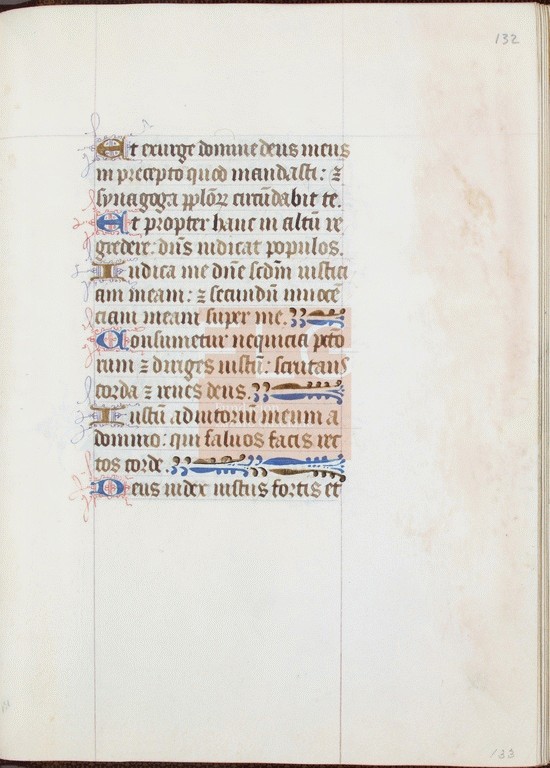 132
Et exurge domine deus meus
in precepto quod mandasti: ⁊
synagoga pplōꝝ circūdabit te.
Et propter hanc in altū re
gredere: dn̄s iudicat populos.
Iudica me dn̄e scdm̄ iustici
am meam: ⁊ secundū innocē
ciam meam super me.
Consumetur nequicia pctō
rum ⁊ diriges iustū: scrutans
corda ⁊ renes deus.
Iustū adiutoriū meum a
domino: qui saluos facit rec
tos corde.
Deus iudex iustus fortis et
133